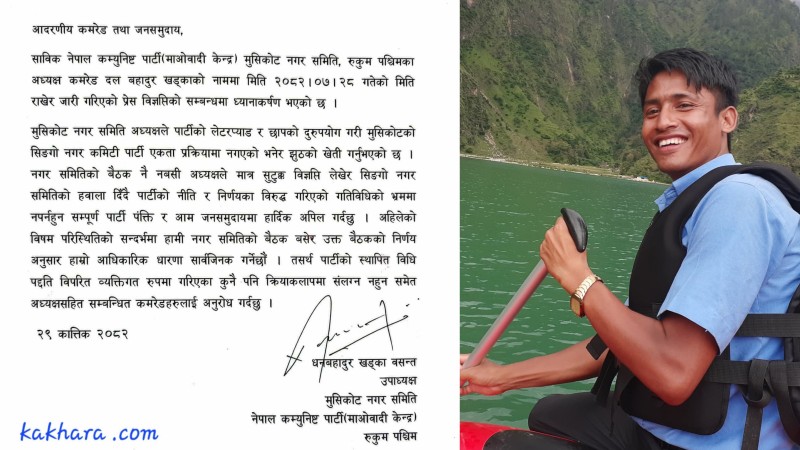 आदरणीय कमरेड तथा जनसमुदाय,
साविक नेपाल कम्युनिष्ट पार्टी(माओवादी केन्द्र) मुसिकोट नगर समिति, रुकुम पश्चिमका
अध्यक्ष कमरेड दल बहादुर खड्काको नाममा मिति २०८२।०७।२८ गतेको मिति
राखेर जारी गरिएको प्रेस विज्ञप्तिको सम्बन्धमा ध्यानाकर्षण भएको छ ।
मुसिकोट नगर समिति अध्यक्षले पार्टीको लेटरप्याड र छापको दुरुपयोग गरी मुसिकोटको
सिङगो नगर कमिटी पार्टी एकता प्रक्रियामा नगएको भनेर झुठको खेती गर्नुभएको छ ।
नगर समितिको बैठक नै नबसी अध्यक्षले मात्र सुटुक्क विज्ञप्ति लेखेर सिङगो नगर
समितिको हवाला दिँदै पार्टीको नीति र निर्णयका विरुद्ध गरिएको गतिविधिको भ्रममा
नपर्नहुन सम्पूर्ण पार्टी पंक्ति र आम जनसमुदायमा हार्दिक अपिल गर्दछु । अहिलेको
विषम परिस्थितिको सन्दर्भमा हामी नगर समितिको बैठक बसेर उक्त बैठकको निर्णय
अनुसार हाम्रो आधिकारिक धारणा सार्वजिनक गर्नेछौं । तसर्थ पार्टीको स्थापित विधि
पद्दति विपरित व्यक्तिगत रुपमा गरिएका कुनै पनि क्रियाकलापमा संलग्न नहुन समेत
अध्यक्षसहित सम्बन्धित कमरेडहरुलाई अनुरोध गर्दछु ।
२९ कात्तिक २०८२
धनबहादुर खड्का बसन्त
उपाध्यक्ष
मुसिकोट नगर समिति
नेपाल कम्युनिष्ट पार्टी(माओवादी केन्द्र)
रुकुम पश्चिम
kakhara .com